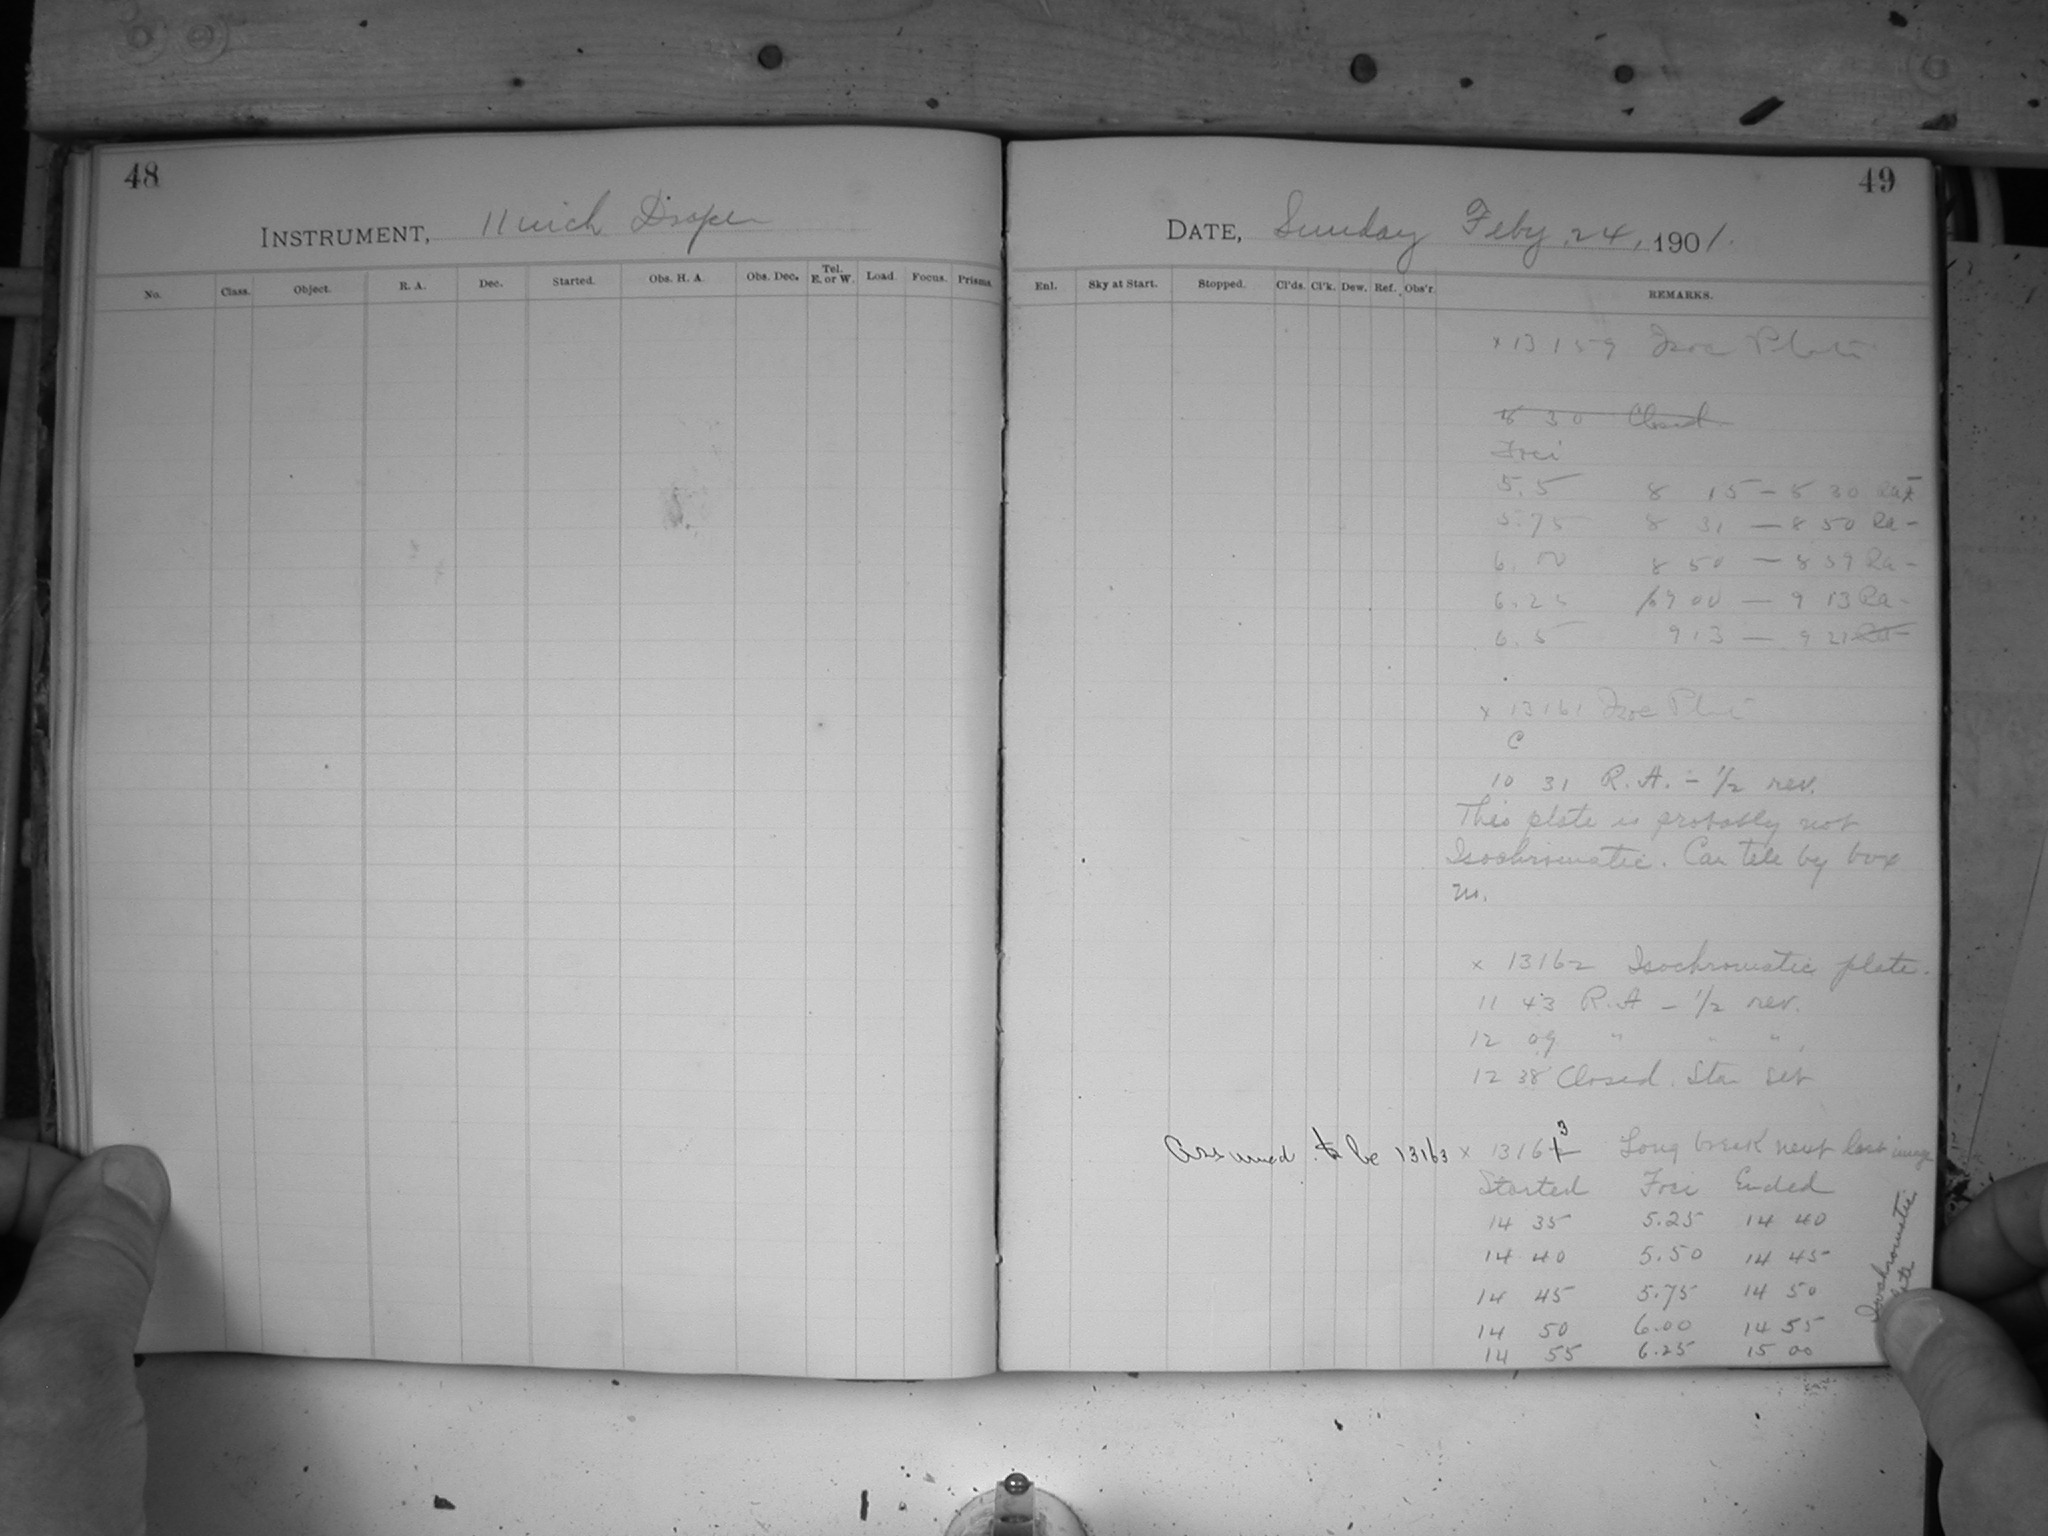 48
INSTRUMENT, 11 inch Draper
No. Class. Object. R. A. Dec. Started. Obs. H. A. Obs. Dec. Tel. E. or W. Load. Focus. Prisms.
49
DATE, Sunday Feby. 24, 1901.
Enl. Sky at Start. Stopped. Cl'ds. Cl'k. Dew. Ref. Obs'r. REMARKS.
x 13159 Isoc Plate
8 30 Closed
Foci
5.5 8 15 — 8 30 Ra
5.75 8 31 — 8 50 Ra -
6.00 8 50 — 8 59 Ra -
6.25 9 00 — 9 13 Ra -
6.5 9 13 — 9 21 Ra -
x 13161 Isoc Plate
C
10 31 R. A. - 1/2 rev.
This plate is probably not
Isochromatic. Can tell by box
x 13162 Isochromatic plate.
11 43 R. A - 1/2 rev.
12 09 " " "
12 38 Closed. Star set
Assumed to be 13163 x 1316 3 Long break next last image
Started Foci Ended
14 35 5.25 14 40
14 40 5.50 14 45
14 45 5.75 14 50
14 50 6.00 14 55
14 55 6.25 15 00
Isochromatic